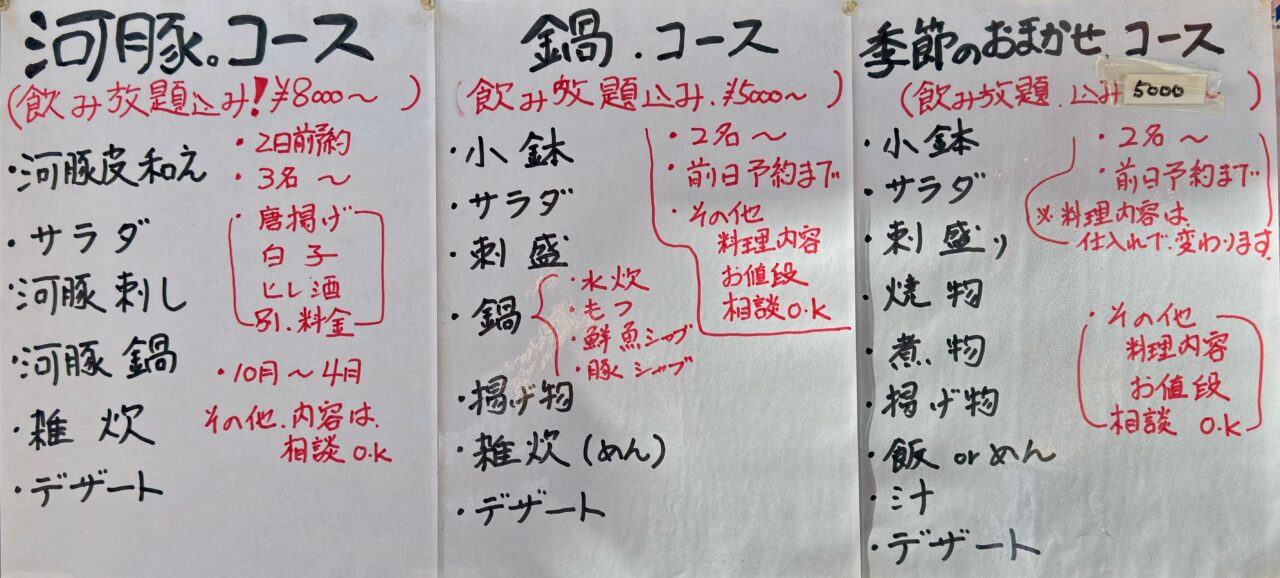 河豚。コース
(飲み放題込み！¥8000～)
・河豚皮和え
・サラダ
・河豚刺し
・河豚鍋
・雑炊
・デザート
・2日前予約
・3名～
・唐揚げ
白子
ヒレ酒
別.料金
・10月～4月
その他.内容は.
相談O.K
鍋.コース
(飲み放題込み.¥5000～)
・小鉢
・サラダ
・刺盛
・鍋
・水炊
・もつ
・鮮魚シャブ
・豚シャブ
・揚げ物
・雑炊(めん)
・デザート
・2名～
・前日予約まで
・その他
料理内容
お値段
相談O.K
季節のおまかせ.コース
(飲み放題.込み 5000～)
・小鉢
・サラダ
・刺盛り
・焼物
・煮物
・揚げ物
・飯orめん
・汁
・デザート
・2名～
・前日予約まで
※料理内容は
仕入れで.変わります.
・その他
料理内容
お値段
相談O.K